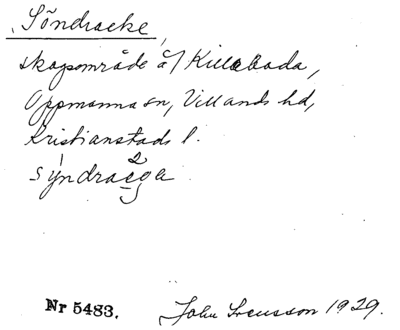 Söndracke,
skogsområde å/ Killeboda,
Oppmanna sn, Villands hd,
Kristianstads l.
syndraega
Nr 5483. John Svensson 1929.